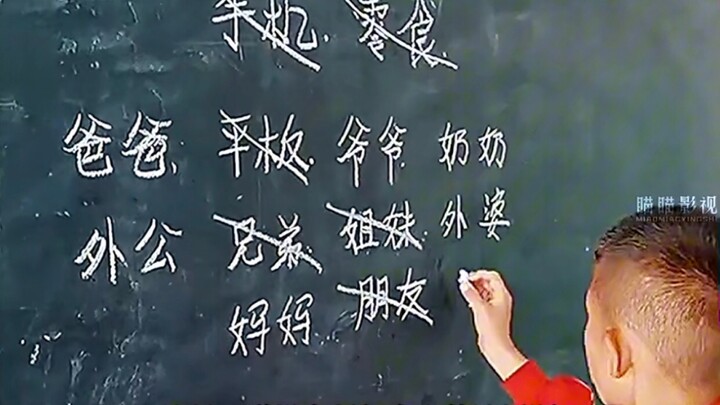 手机 零食
爸爸 平板 爷爷 奶奶
外公 兄弟 姐妹 外婆
妈妈 朋友
瞄瞄影视
MIAOMIAOYINGSHI